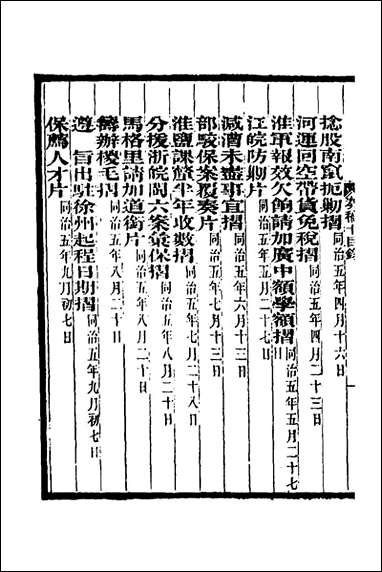 奏稿 十目錄
捻股南竄扼剿摺同治五年四月十六日
河運回空帶貨免稅摺同治五年四月二十三日
淮軍報效欠餉請加廣中額學額摺同治五年五月二十七日
江皖防剿片同治五年五月二十七日
減漕未盡事宜摺同治五年六月十三日
部駁保案覆奏片同治五年七月十三日
淮鹽課釐半年收數摺同治五年七月二十八日
分援浙皖閩六案彙保摺同治五年八月二十日
馬格里請加道銜片同治五年八月二十日
籌辦稜毛摺同治五年八月二十日
遵 旨出駐徐州起程日期摺同治五年九月初七日
保薦人才片同治五年九月初七日